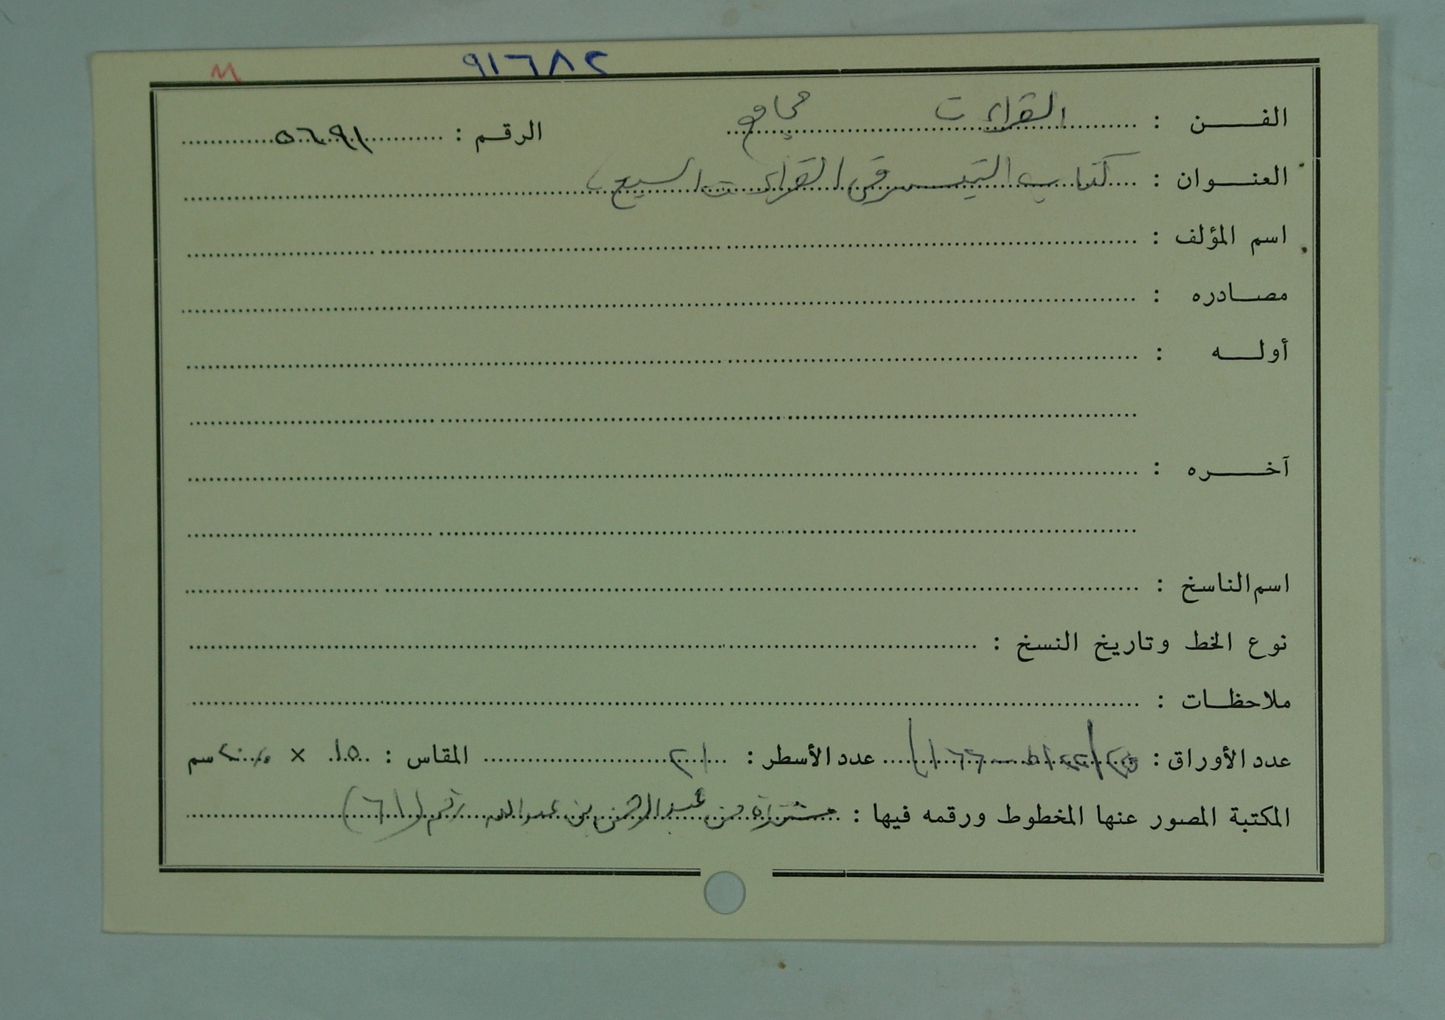 ٩١٦٨٢
الفــن : القراءت مجاميع الرقم : ٥٦٩١
العنوان : كتاب التيسير في القراءت السبع
اسم المؤلف :
مصادره :
أوله :
آخره :
اسم الناسخ :
نوع الخط وتاريخ النسخ :
ملاحظات :
عدد الأوراق : عدد الأسطر : ٢١ المقاس : ١٥ × ٢٠ سم
المكتبة المصور عنها المخطوط ورقمه فيها : مشتراة من عبد الرحمن بن عبد الله رقم (٦١)